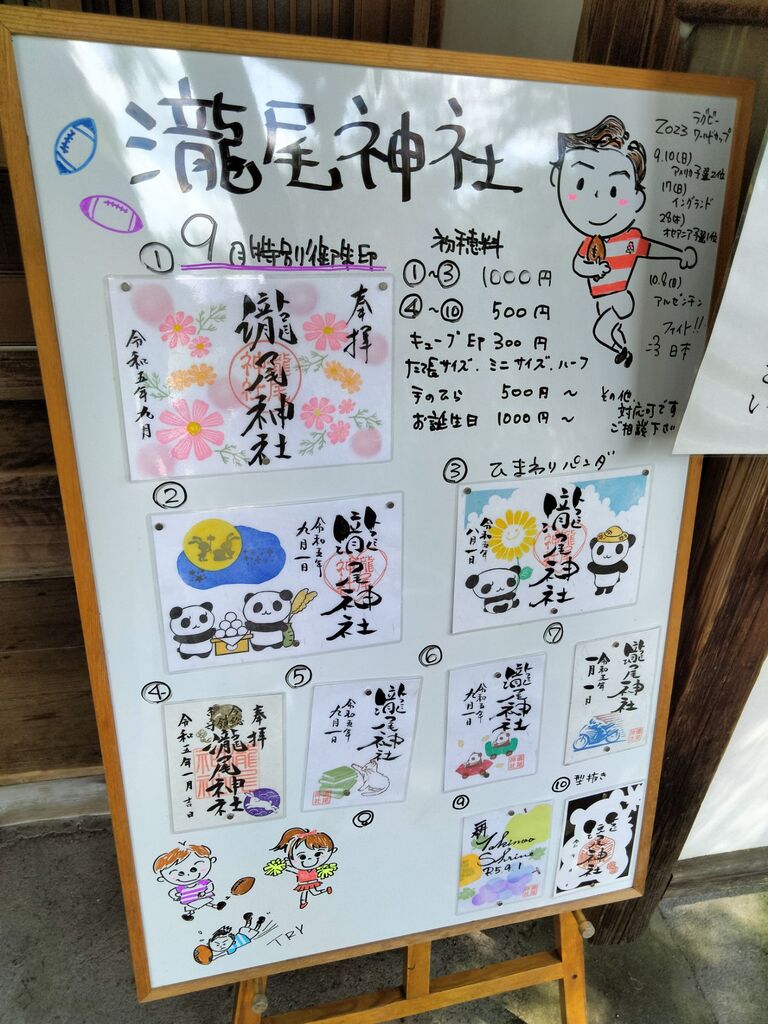 瀧尾神社
2023 ラグビー
ワールドカップ
9.10(日)
アメリカ予選2位
17(日)
イングランド
28(木)
オセアニア予選1位
10.8(日)
アルゼンチン
ファイト!!
日本
① 9月特別御朱印
初穂料
①〜③ 1000円
④〜⑩ 500円
キューブEP 300円
たて長サイズ、ミニサイズ、ハーフ
手のひら 500円〜
お誕生日 1000円〜
その他
対応可です
ご相談下さい
奉拝
瀧尾神社
令和五年九月
②
瀧尾神社
令和五年
九月一日
③ ひまわりパンダ
瀧尾神社
令和五年
九月一日
④
奉拝
瀧尾神社
令和五年一月吉日
⑤
瀧尾神社
令和五年
九月一日
⑥
瀧尾神社
令和五年
九月一日
⑦
瀧尾神社
令和五年
一月一日
⑧
⑨
Takinoo
Shrine
R5.9.1
⑩ 型抜き
瀧尾神社
TRY